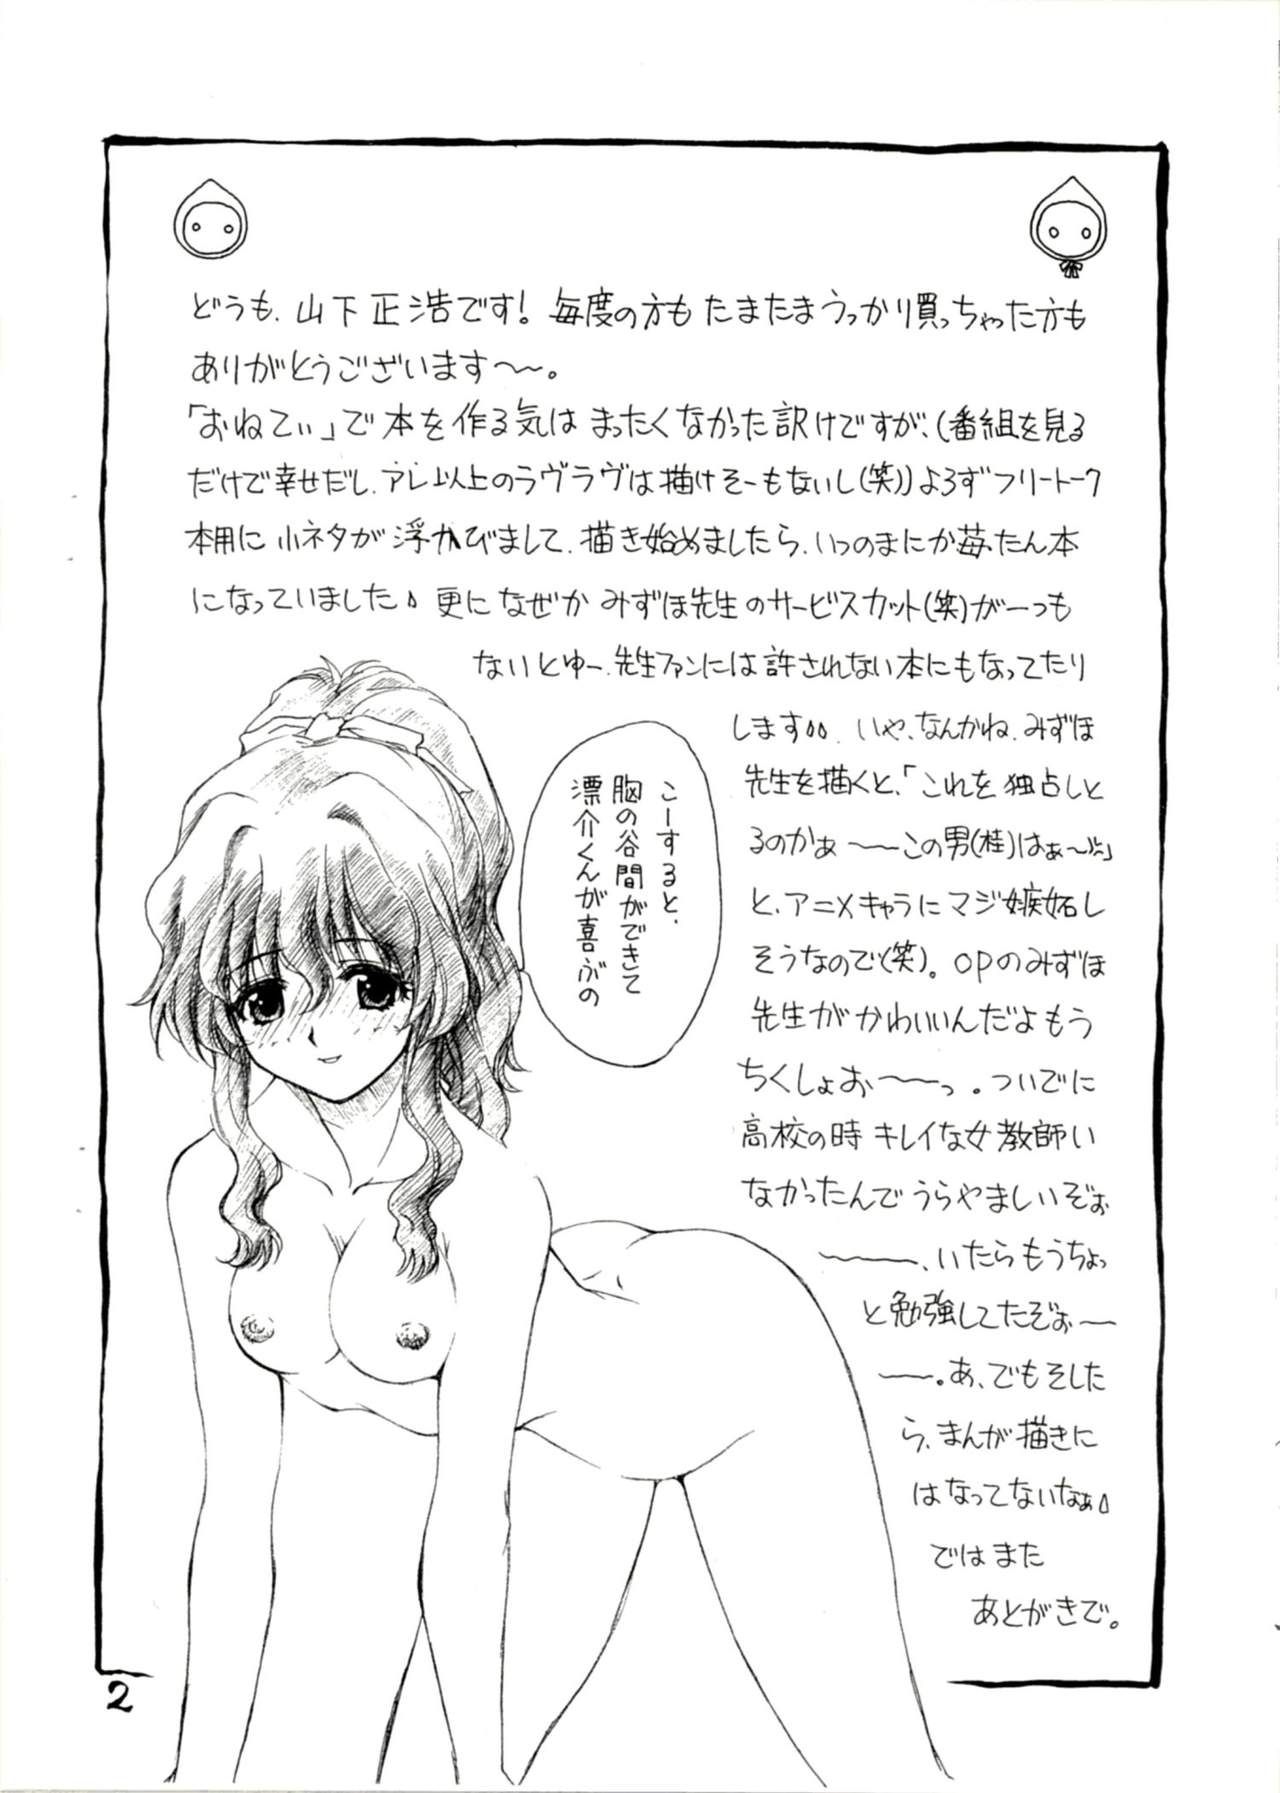 どうも、山下正浩です！毎度の方もたまたまうっかり買っちゃった方も
ありがとうございます〜〜。
「おねてぃ」で本を作る気はまったくなかった訳けですが、(番組を見る
だけで幸せだし、アレ以上のラヴラヴは描けそーもないし(笑))よろずフリートーク
本用に小ネタが浮かびまして、描き始めましたら、いつのまにか苺たん本
になっていました。更になぜかみずほ先生のサービスカット(笑)が一つも
ないとゆー、先生ファンには許されない本にもなってたり
します。いや、なんかね、みずほ
先生を描くと、「これを独占しと
るのかぁ〜〜この男(桂)はぁ〜」
と、アニメキャラにマジ嫉妬し
そうなので(笑)。OPのみずほ
先生がかわいいんだよもう
ちくしょお〜〜っ。ついでに
高校の時キレイな女教師い
なかったんでうらやましいぞぉ
〜〜〜、いたらもうちょっ
と勉強してたぞぉ〜
〜。あ、でもそした
ら、まんが描きに
はなってないなぁ
ではまた
あとがきで。
2